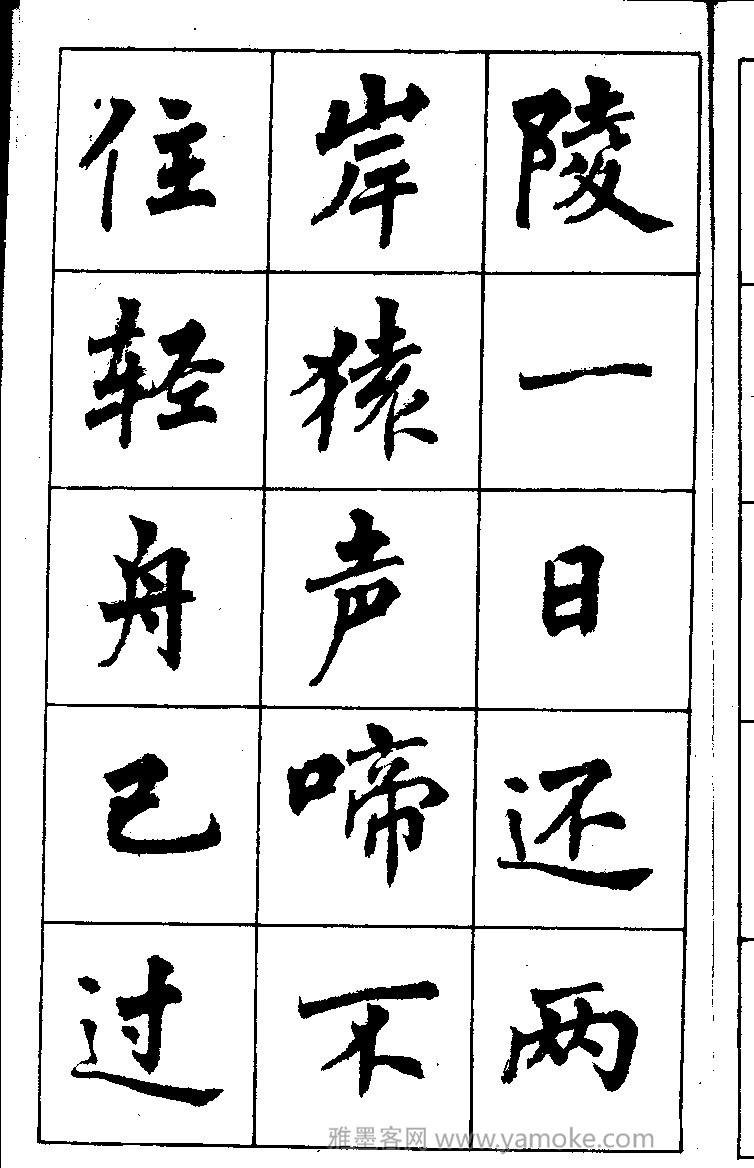 陵一日还两
岸猿声啼不
住轻舟已过
雅墨客网 www.yamoke.com